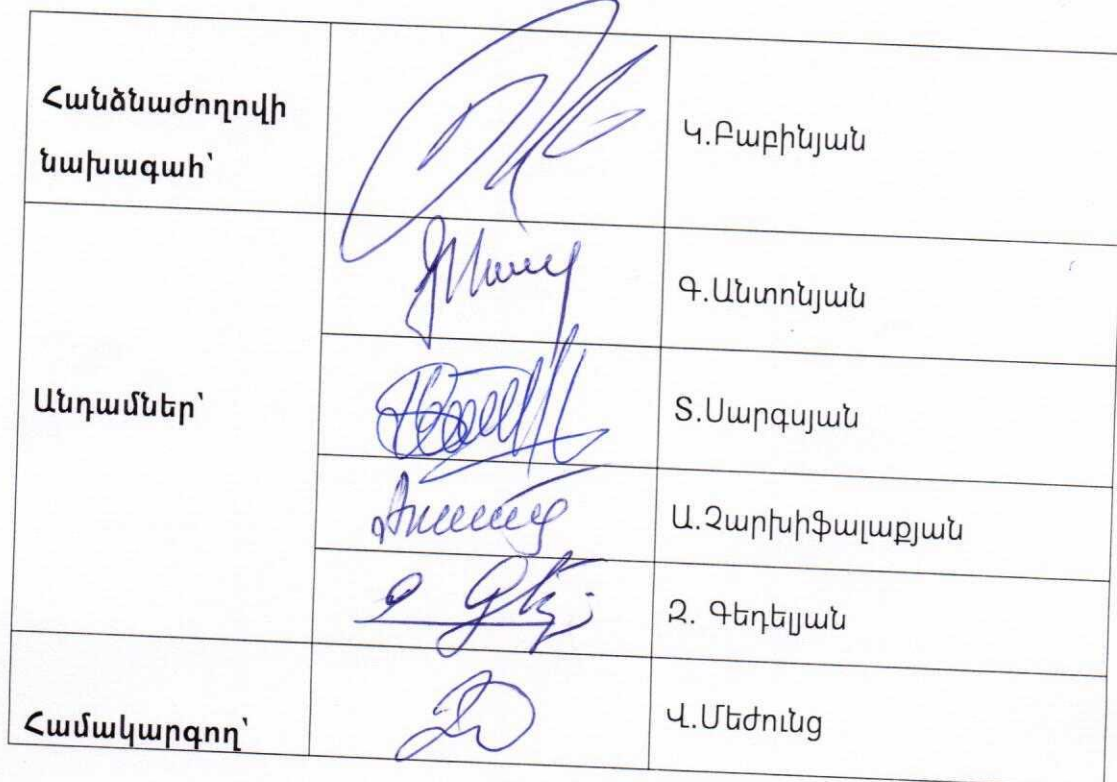 Հանձնաժողովի
նախագահ՝
Կ.Բաբինյան
Անդամներ՝
Գ.Անտոնյան
Տ.Սարգսյան
Ա.Չարխիֆալաքյան
Զ. Գեդելյան
Համակարգող՝
Վ.Մեժունց